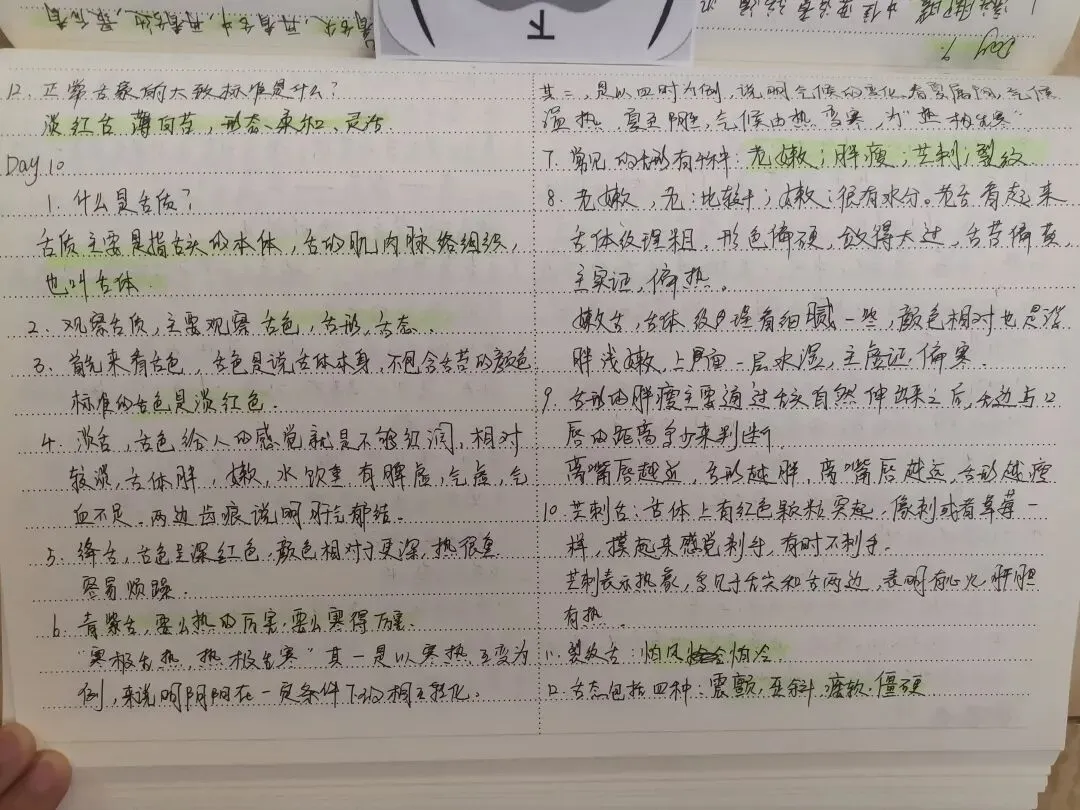 下
Day 9
12. 正常舌象的大致标准是什么？
淡红舌 薄白苔，形态柔和、灵活
Day 10
1. 什么是舌质？
舌质主要是指舌头的本体，舌的肌肉脉络组织，
也叫舌体.
2. 观察舌质，主要观察舌色，舌形，舌态.
3. 首先来看舌色，舌色是说舌体本身，不包含舌苔的颜色
标准的舌色是淡红色.
4. 淡舌，舌色给人的感觉就是不够红润，相对
较淡，舌体胖，嫩，水饮重，有脾虚，气虚，气
血不足。两边齿痕说明肝气郁结.
5. 绛舌，舌色呈深红色，颜色相对于更深，热很重
容易烦躁.
6. 青紫舌，要么热的厉害，要么寒得厉害.
“寒极生热，热极生寒”其一是以寒热互变为
例，来说明阴阳在一定条件下的相互转化.
其二，是以四时为例，说明气候的变化，春夏属阳，气候
温热 夏至阴胜，气候由热变寒，为“热极生寒”
7. 常见的舌形有 ：老嫩；胖瘦；芒刺；裂纹
8. 老嫩，老：比较干；嫩：很有水分。老舌看起来
舌体纹理粗，形色偏硬，敛得太过，舌苔偏黄
主实证，偏热。
嫩舌，舌体纹理看细腻一些，颜色相对也是淡
胖浅嫩，上面一层水湿，主虚证，偏寒.
9. 舌形的胖瘦主要通过舌头自然伸出来之后，舌边与口
唇的距离多少来判断
离嘴唇越近，舌形越胖，离嘴唇越远，舌形越瘦
10. 芒刺舌：舌体上有红色颗粒突起，像刺或者草莓一
样，摸起来感觉刺手，有时不刺手.
芒刺表示热象，多见于舌尖和舌两边，表明有心火 肝胆
有热.
11. 裂纹舌：怕风 怕冷.
12. 舌态包括四种：震颤，歪斜，痿软，僵硬